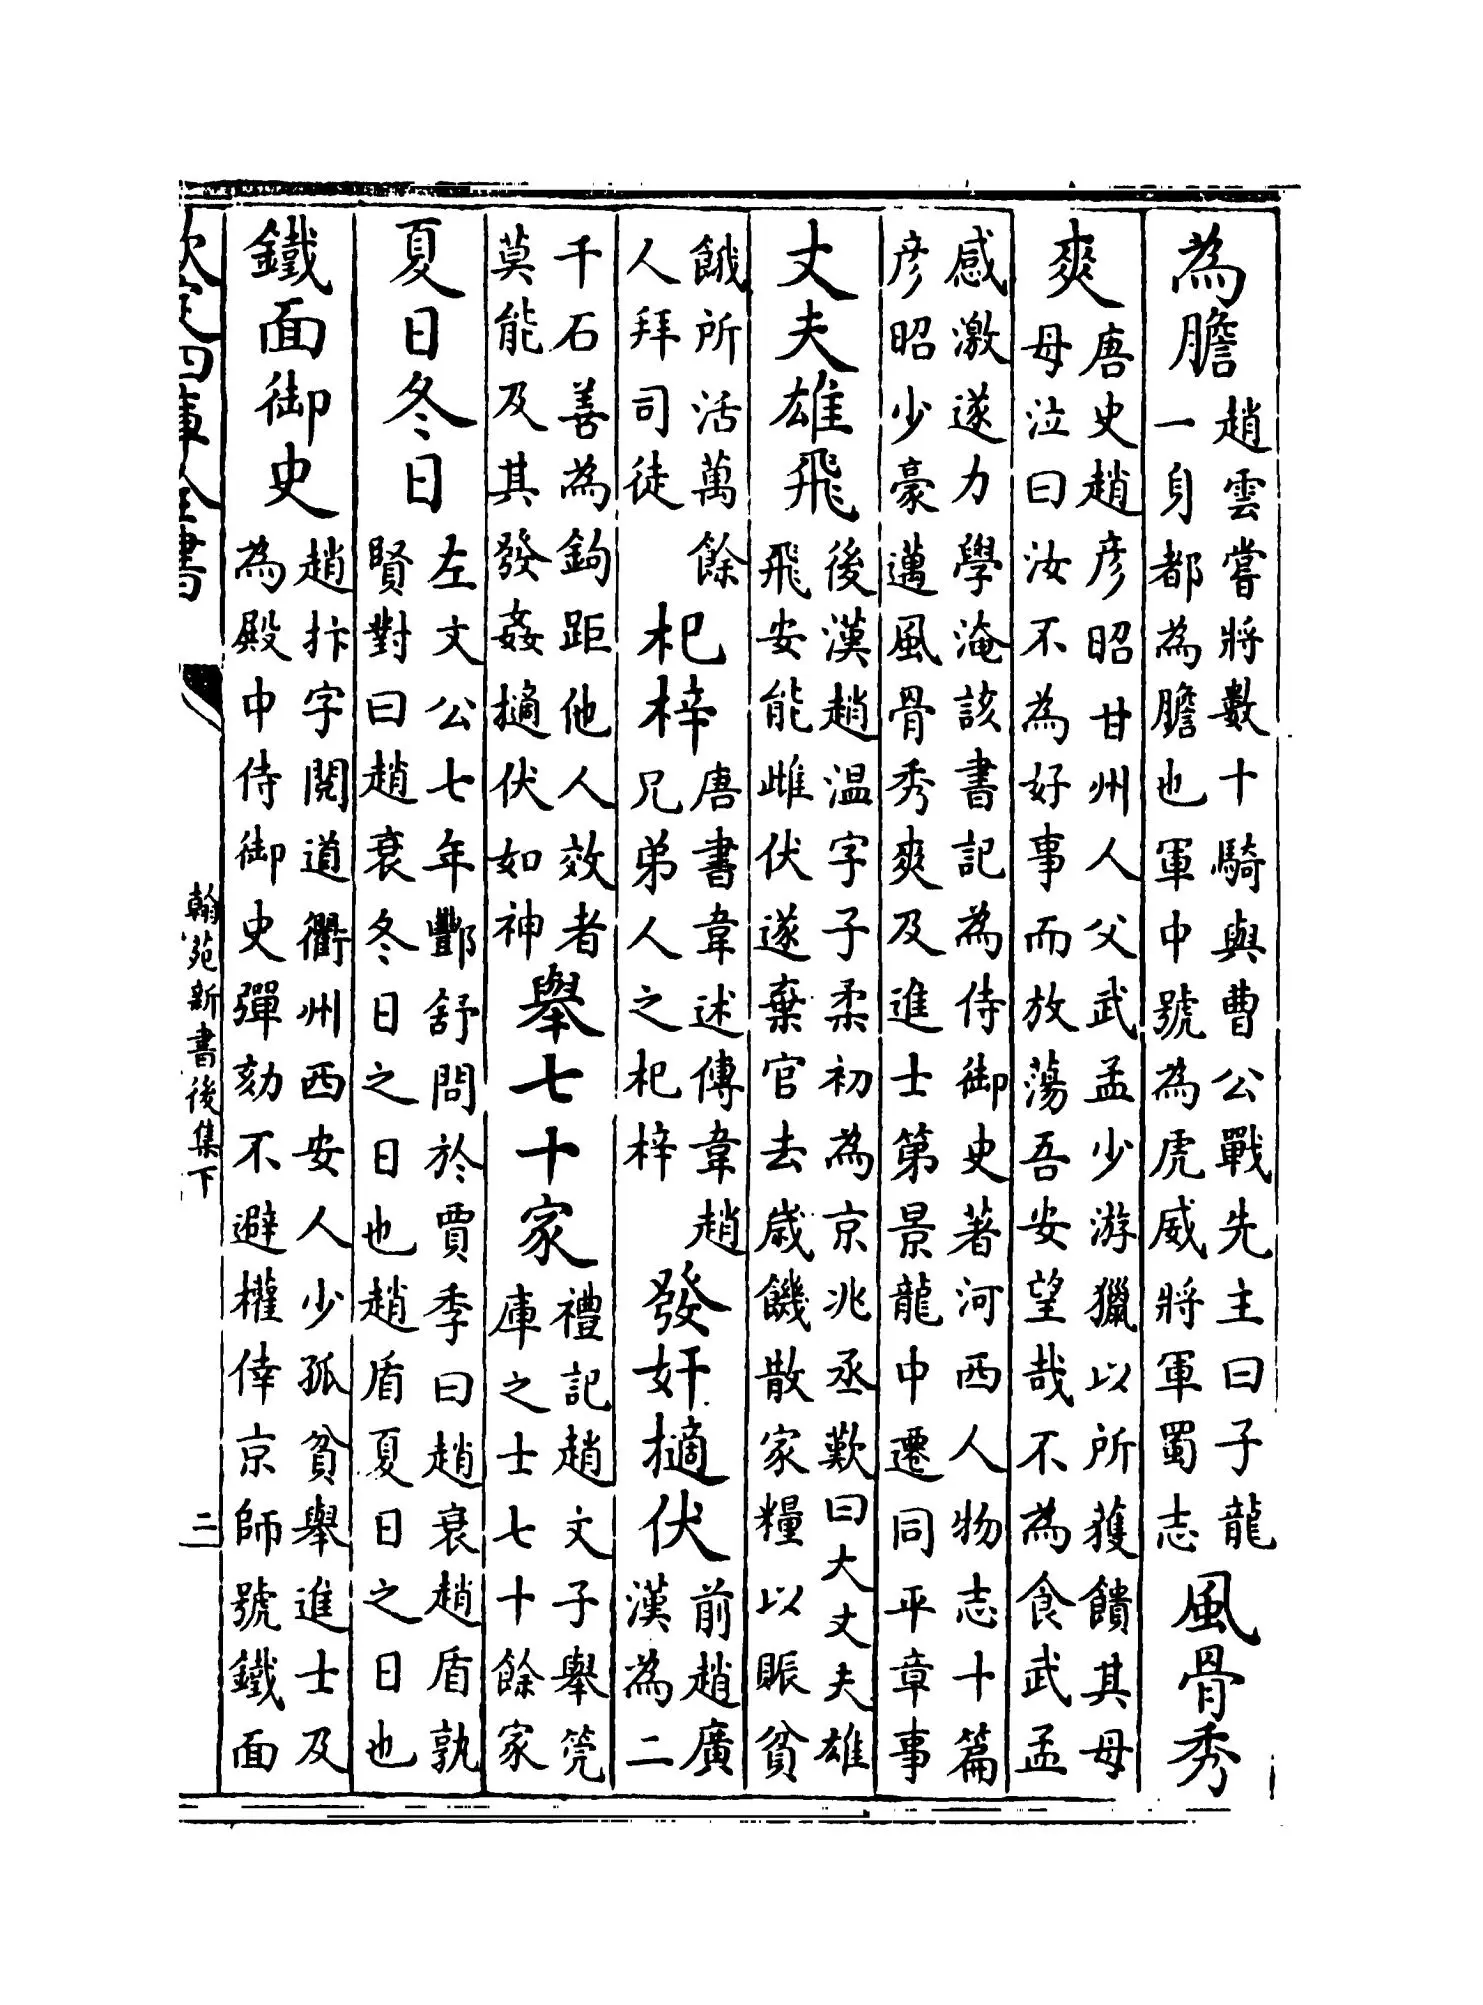 為膽
趙雲嘗將數十騎與曹公戰先主曰子龍
一身都為膽也軍中號為虎威將軍蜀志
風骨秀
爽
唐史趙彦昭甘州人父武孟少游獵以所獲饋其母
母泣曰汝不為好事而放蕩吾安望哉不為食武孟
感激遂力學淹該書記為侍御史著河西人物志十篇
彦昭少豪邁風骨秀爽及進士第景龍中遷同平章事
丈夫雄飛
後漢趙温字子柔初為京兆丞歎曰大丈夫雄
飛安能雌伏遂棄官去歲饑散家糧以賑貧
餓所活萬餘
人拜司徒
杞梓
唐書韋述傳韋趙
兄弟人之杞梓
發奸擿伏
前趙廣
漢為二
千石善為鉤距他人效者
莫能及其發姦擿伏如神
舉七十家
禮記趙文子舉筦
庫之士七十餘家
夏日冬日
左文公七年酆舒問於賈季曰趙衰趙盾孰
賢對曰趙衰冬日之日也趙盾夏日之日也
鐵面御史
趙抃字閱道衢州西安人少孤貧舉進士及
為殿中侍御史彈劾不避權倖京師號鐵面
欽定四庫全書
翰苑新書後集下
二